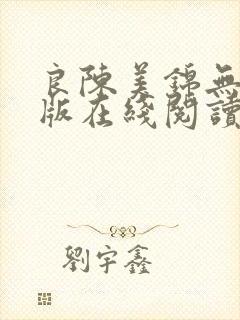 良陳美錦無
版在綫閱讀
劉宇鑫